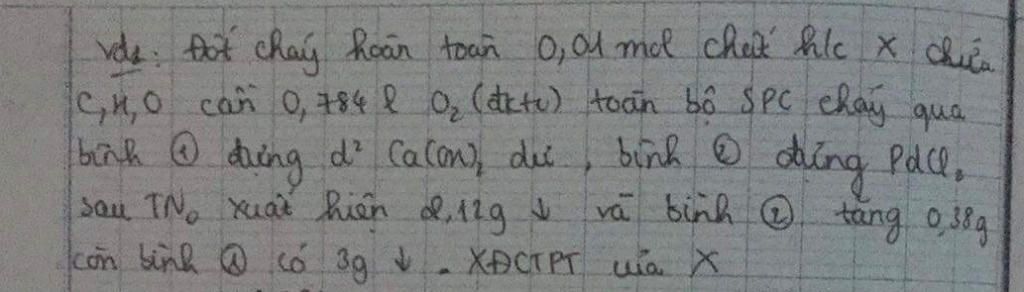 vd2: Đốt cháy hoàn toàn 0,01 mol chất h/c X chứa
C, H, O cần 0,784 l O2 (đktc) toàn bộ SPC cháy qua
bình ① đựng d² Ca(OH)2 dư, bình ② đựng PdCl2
sau TNo xuất hiện 2,12g ↓ và bình ② tăng 0,38g
còn bình ① có 3g ↓. XĐCTPT của X